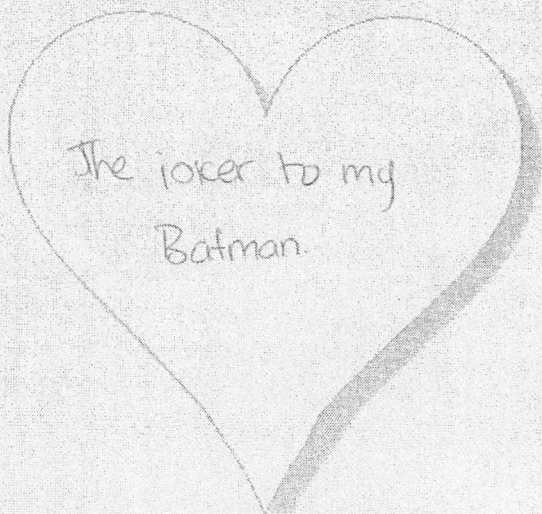 The joker to my
Batman.